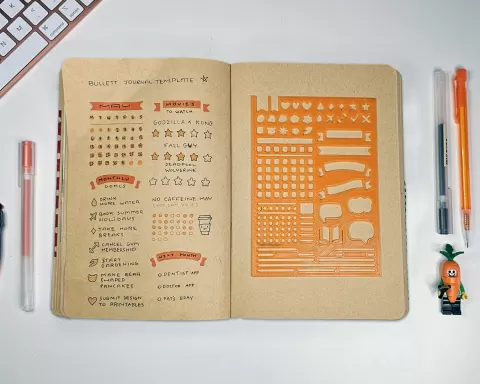 BULLETT JOURNAL TEMPLATE
MAY
MONTHLY
GOALS
DRINK
MORE WATER
BOOK SUMMER
HOLIDAYS
TAKE MORE
BREAKS
CANCEL GYM
MEMBERSHIP
START
GARDENING
MAKE BEAR
SHAPED
PANCAKES
SUBMIT DESIGN
TO PRINTABLES
MOVIES
TO WATCH
GODZILLA X KONG
FALL GUY
DEADPOOL
WOLVERINE
NO CAFFEINE MAY
NEXT MONTH
DENTIST APP
DOCTOR APP